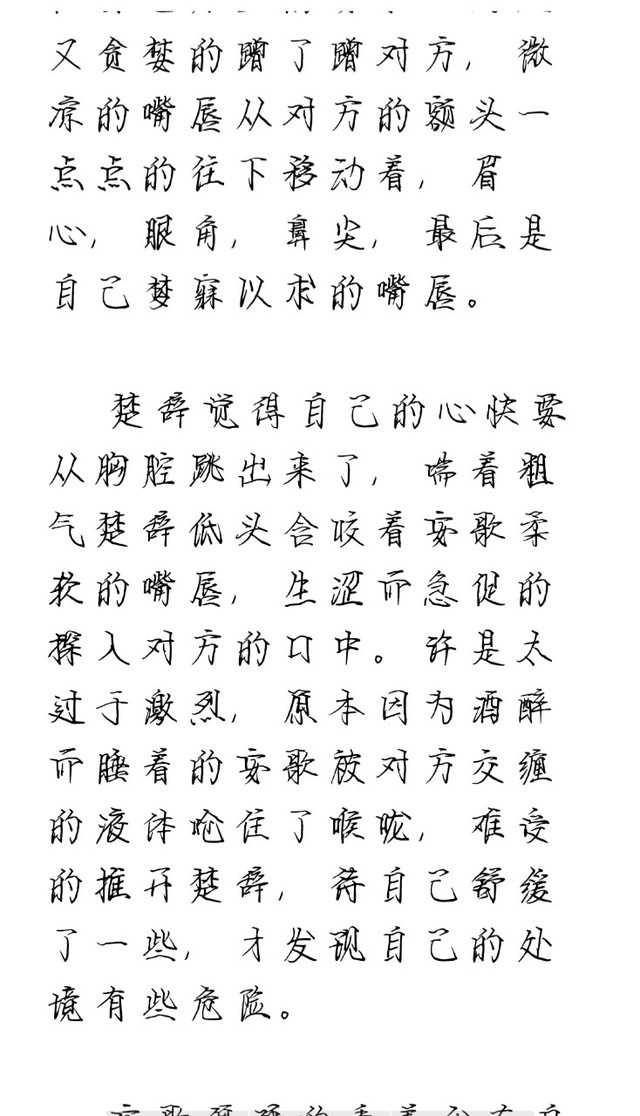 又贪婪的蹭了蹭对方，微
凉的嘴唇从对方的额头一
点点的往下移动着，眉
心，眼角，鼻尖，最后是
自己梦寐以求的嘴唇。
楚辞觉得自己的心快要
从胸腔跳出来了，喘着粗
气楚辞低头含咬着安歌柔
软的嘴唇，生涩而急促的
探入对方的口中。许是太
过于激烈，原本因为酒醉
而睡着的安歌被对方交缠
的液体呛住了喉咙，难受
的推开楚辞，待自己舒缓
了一些，才发现自己的处
境有些危险。